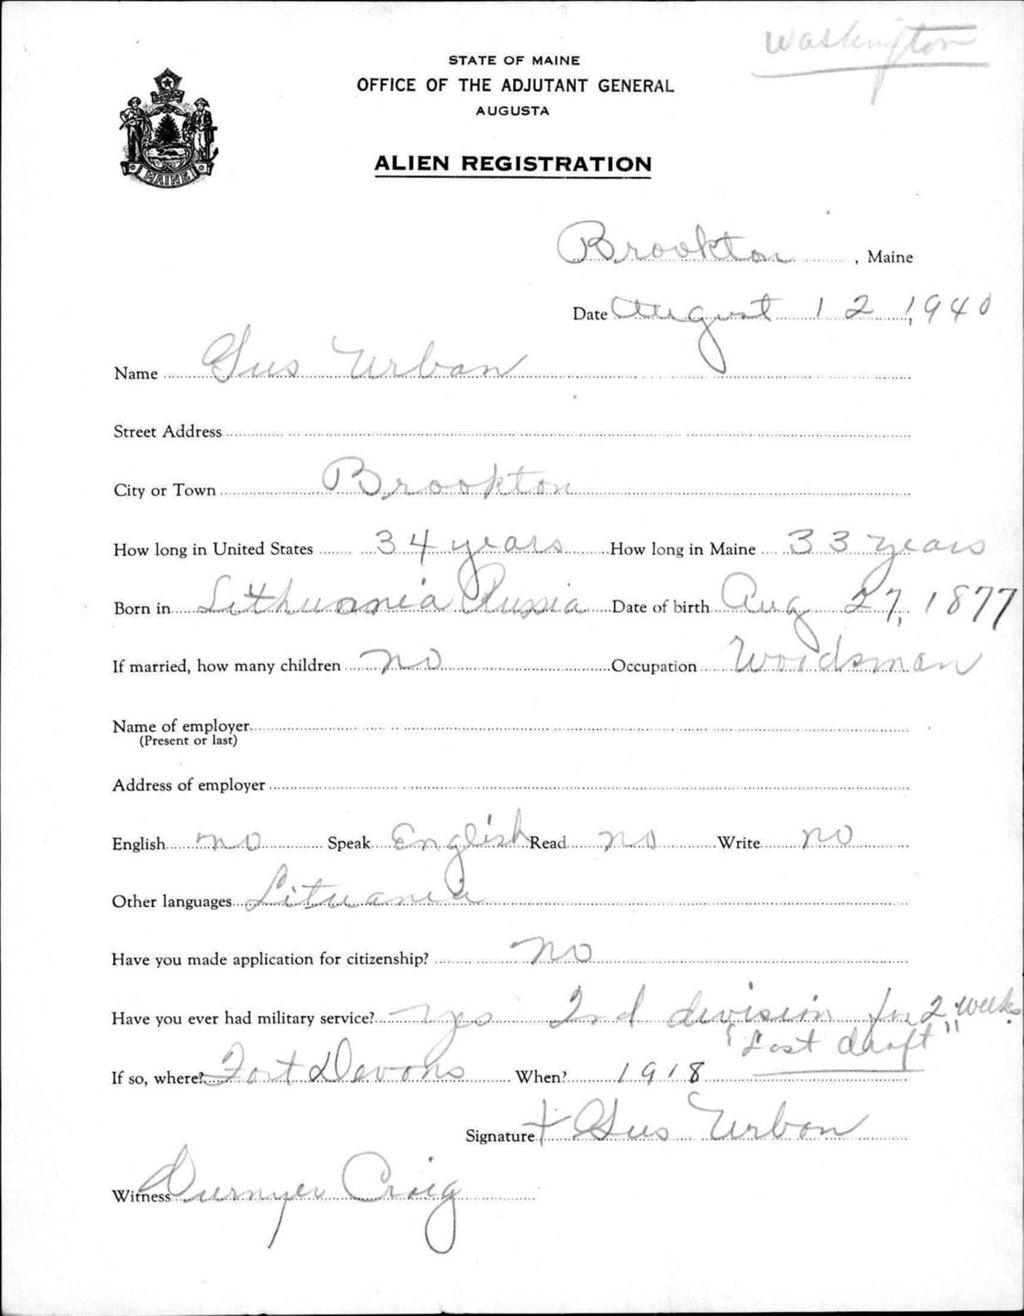 Washington
STATE OF MAINE
OFFICE OF THE ADJUTANT GENERAL
AUGUSTA
MAINE
ALIEN REGISTRATION
Brookton, Maine
Date August 12, 1940
Name Gus Urban
Street Address
City or Town Brookton
How long in United States 34 years How long in Maine 33 years
Born in Lithuania Russia Date of birth Aug 27, 1877
If married, how many children no Occupation Woodsman
Name of employer
(Present or last)
Address of employer
English no Speak English Read no Write no
Other languages Lituania
Have you made application for citizenship? no
Have you ever had military service? yes 2nd division for 2 weeks
"Last draft"
If so, where? Fort Devons When? 1918
Signature + Gus Urban
Witness Craig